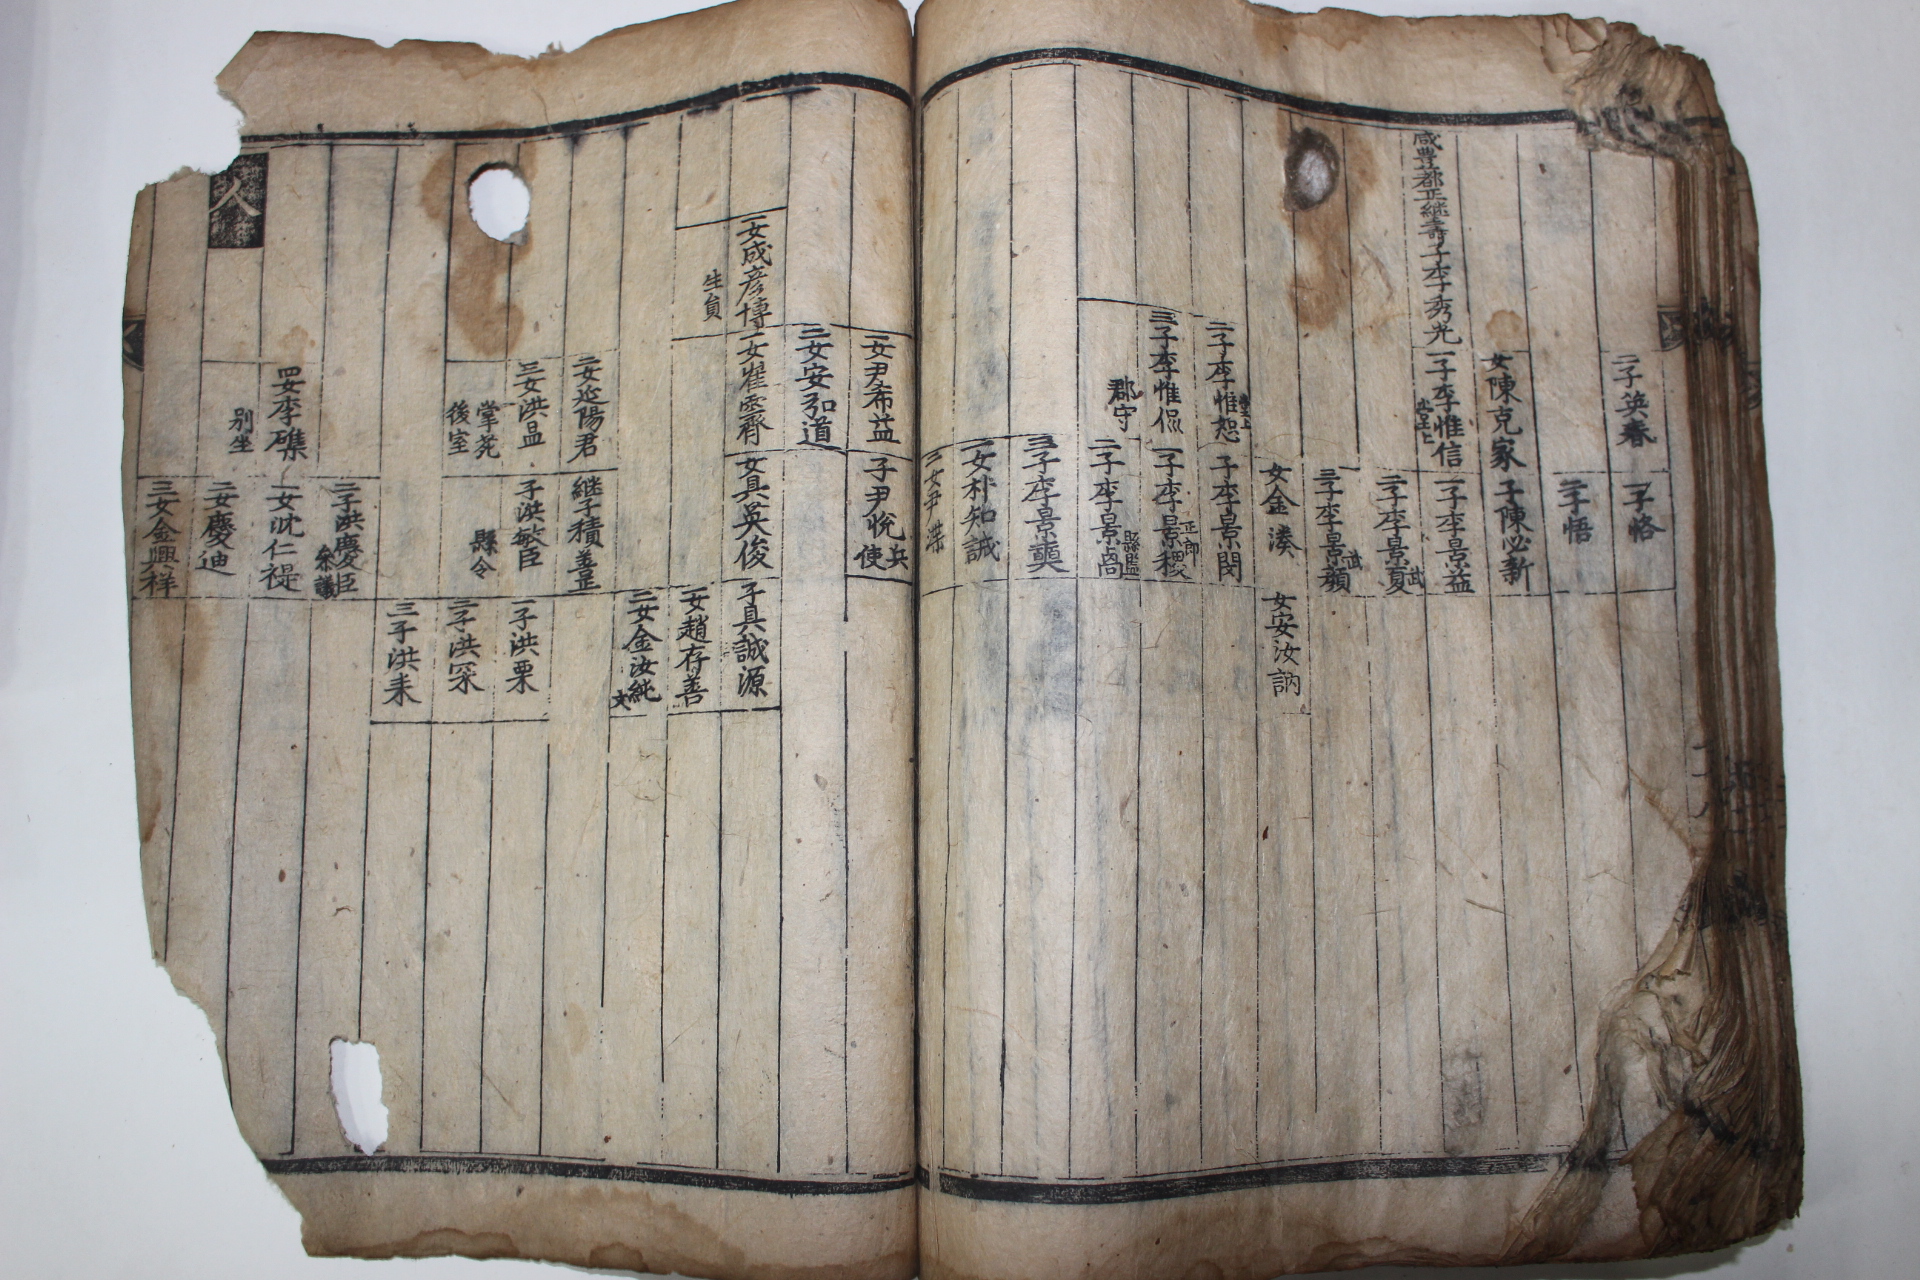 二子英春
一子恪
二子悟
女陳克家
子陳必新
咸豊都正継壽子李秀光
一子李惟信
一子李景益
二子李景夏
武
三子李景顔
武
女金湊
女安汝訥
二子李惟恕
子李景閔
三子李惟侃
郡守
一子李景稷
正郎
二子李景卨
縣監
三子李景奭
一女朴知誠
二女尹澕
一女尹希益
子尹悅
兵使
二女安弘道
一女成彦博
生員
一女崔霽
女具英俊
子具誠源
一女趙存善
二女金汝純
文
二女延陽君
継子積善正
三女洪昷
掌苑
後室
子洪敏臣
縣令
一子洪栗
二子洪寀
三子洪耒
二子洪慶臣
叅議
四女李礁
別坐
一女沈仁禔
二女慶迪
三女金興祥
人